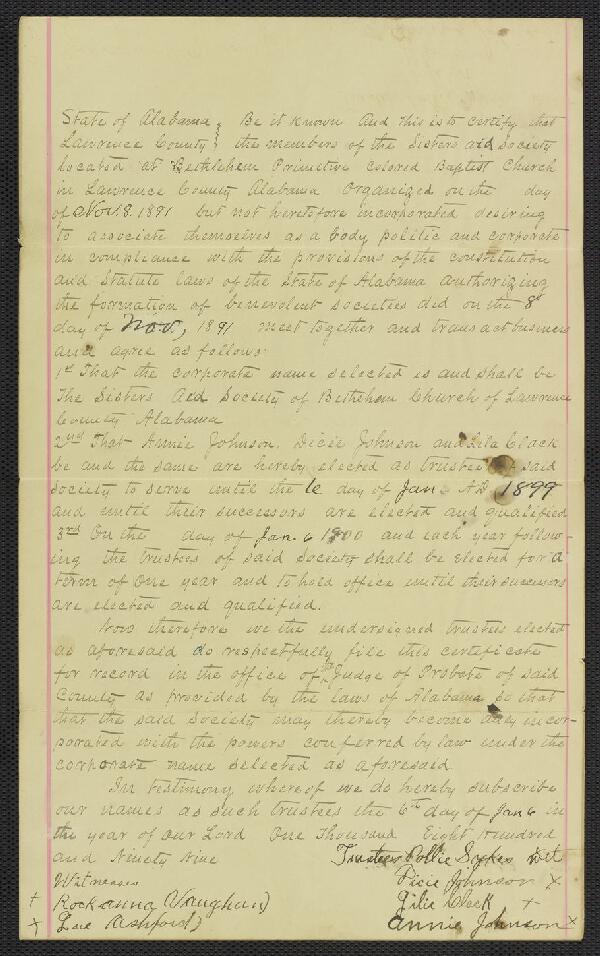 State of Alabama } Be it known And this is to certify that
Lawrence County } the members of the Sisters aid Society
located at Bethlehem Primitive Colored Baptist Church
in Lawrence County Alabama Organized on the day
of Nov 8. 1891 but not heretofore incorporated desiring
to associate themselves as a body politic and corporate
in compliance with the provisions of the constitution
and Statute laws of the State of Alabama authorizing
the formation of benevolent societies did on the 8
day of Nov, 1891 meet together and transact business
and agree as follows
1st That the corporate name selected is and shall be
The Sisters Aid Society of Bethlehem Church of Lawrence
County Alabama
2nd That Annie Johnson. Dicie Johnson and Lila Clack
be and the same are hereby elected as trustee said
Society to serve until the 6 day of Jan AD 1899
and until their successors are elected and qualified
3rd On the day of Jan. 6 1900 and each year follow-
ing the trustees of said Society shall be elected for a
term of One year and to hold office until their successors
are elected and qualified.
Now therefore we the undersigned trustees elected
as aforesaid do respectfully file this certificate
for record in the office of the Judge of Probate of said
County as provided by the laws of Alabama so that
that the said Society may thereby become duly incor-
porated with the powers conferred by law under the
corporate name selected as aforesaid
In testimony whereof we do hereby subscribe
our names as such trustees the 6th day of Jan 6 in
the year of our Lord One Thousand Eight Hundred
and Ninety Nine Trustees Pollie Sykes
Witnesses Dicie Johnson x
+ Rockanna Vaughan) Lilie Clack +
+ Lue Ashford) Annie Johnson x